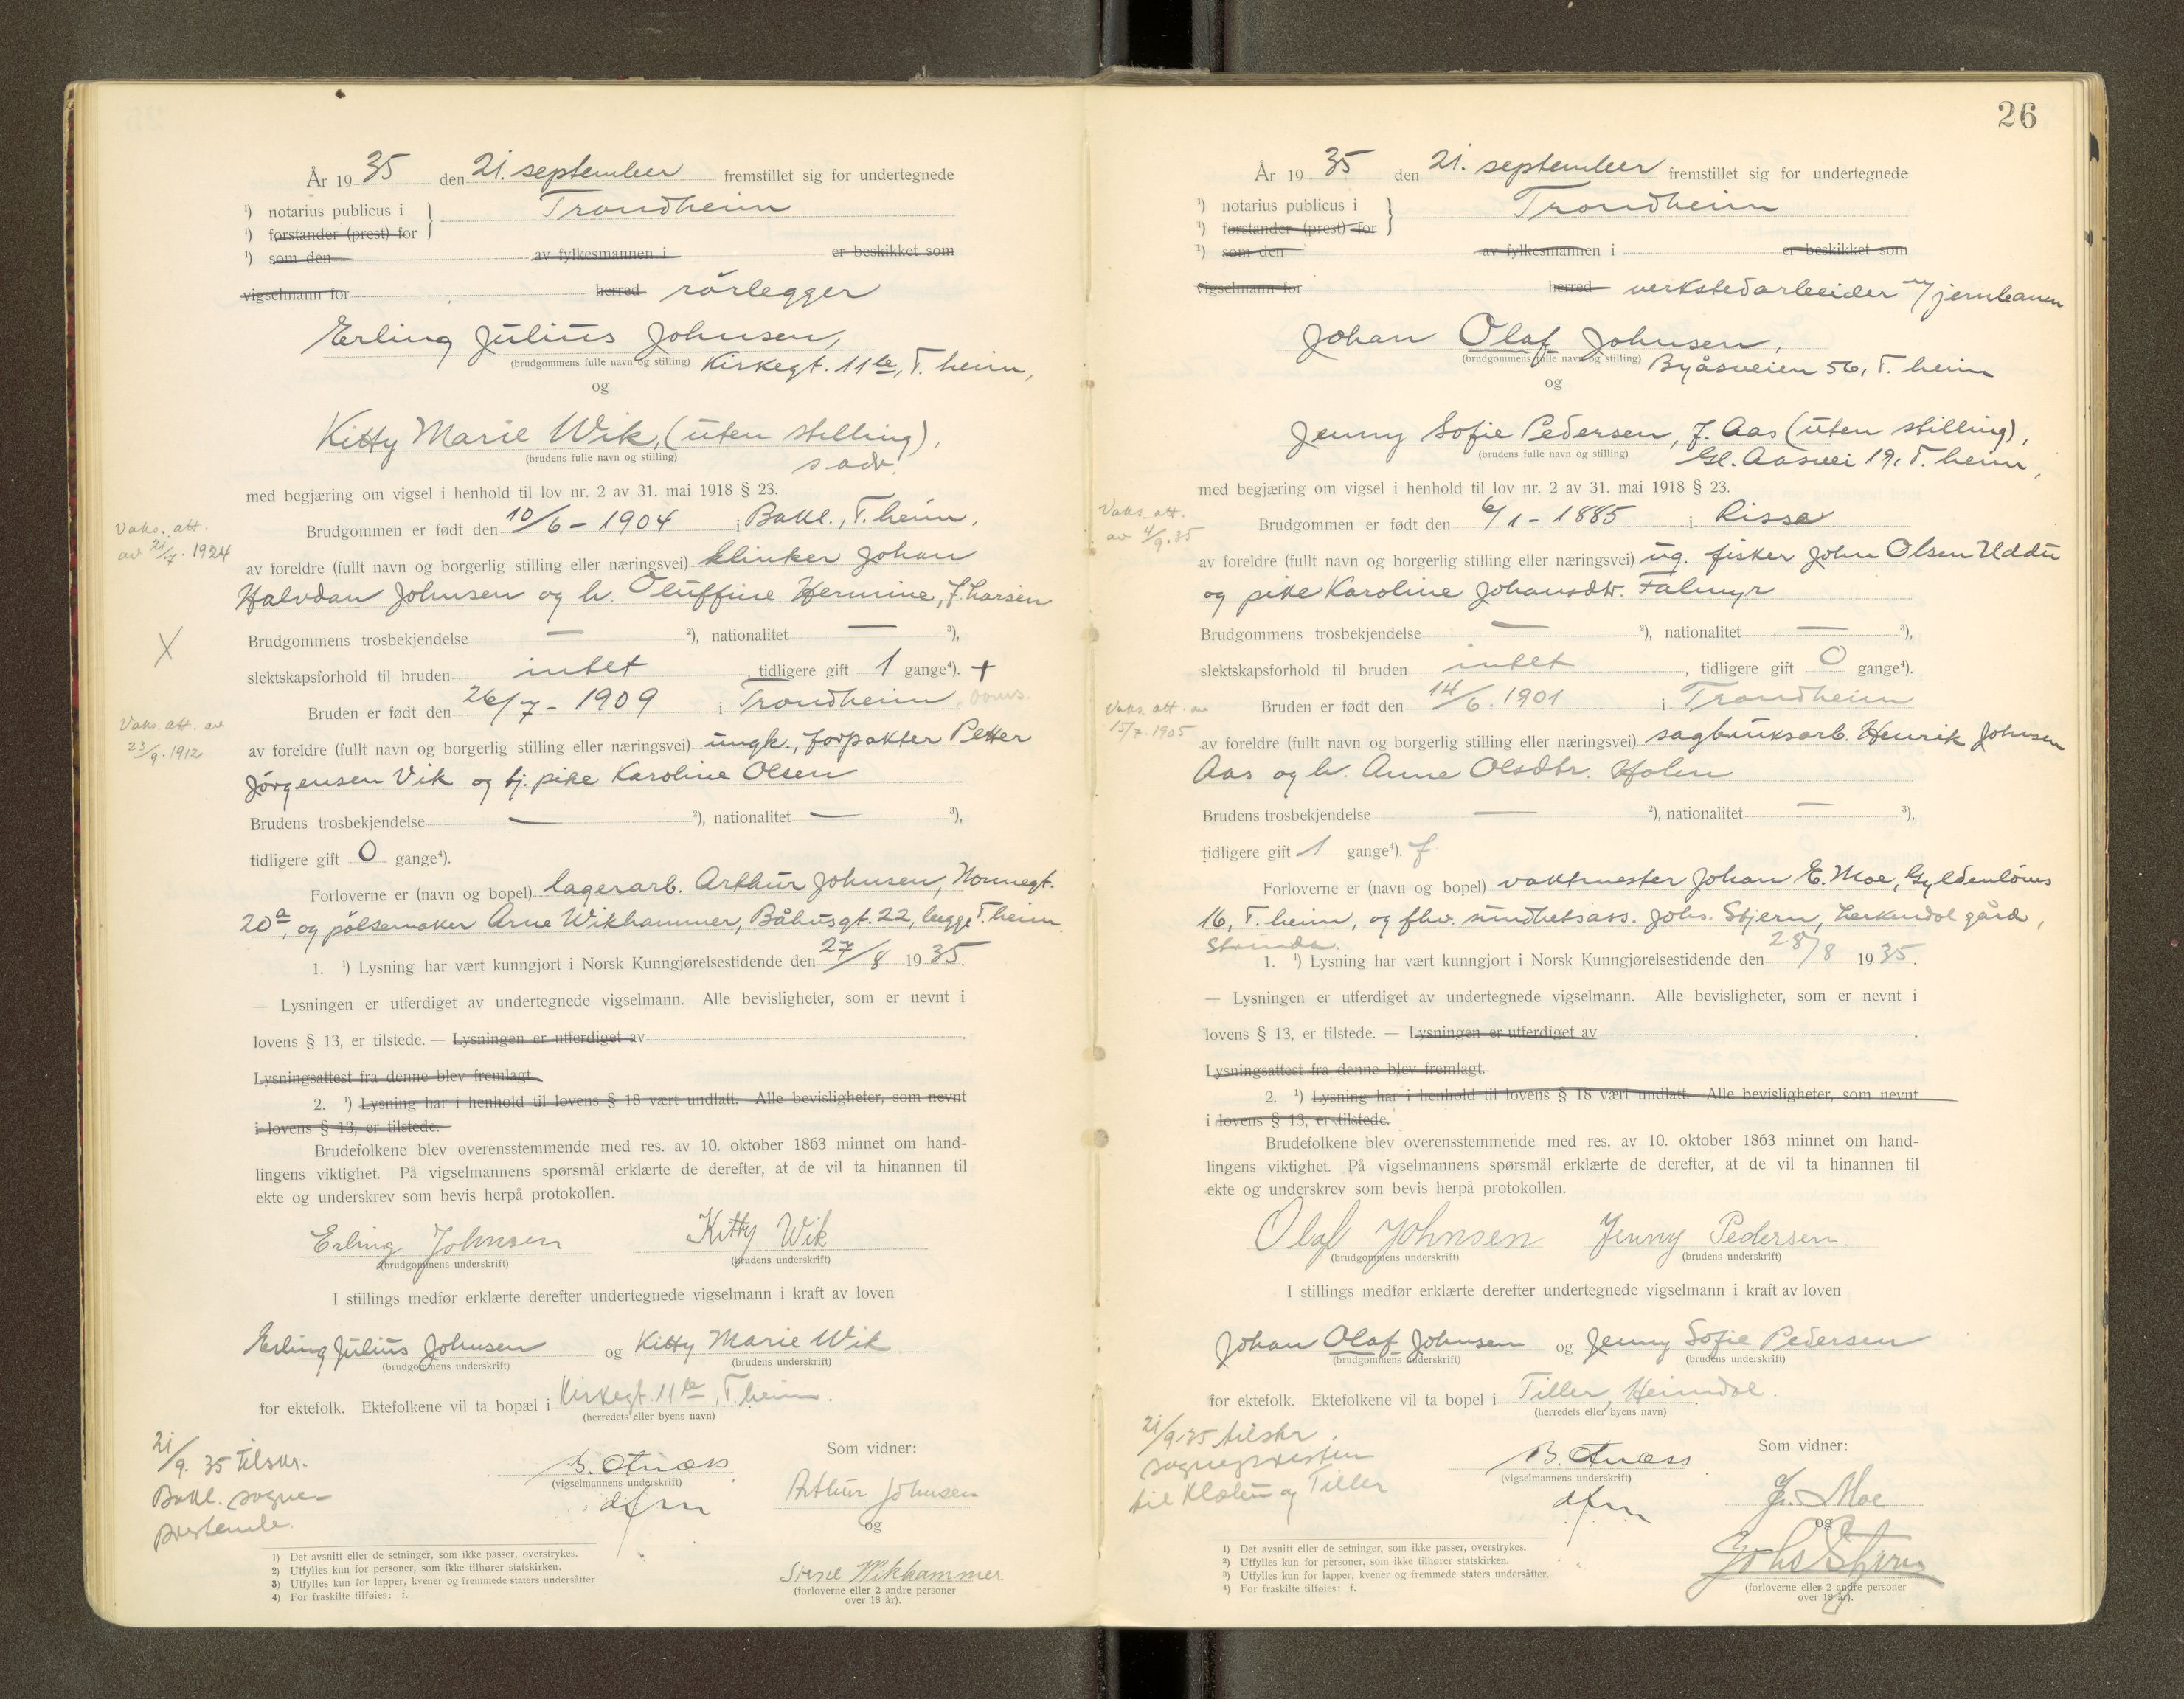 År 1935 den 21. september fremstillet sig for undertegnede
¹) notarius publicus i Trondheim
¹) forstander (prest) for
¹) som den av fylkesmannen i er beskikket som
vigselmann for herred rörlegger
Erling Julius Johnsen,
(brudgommens fulle navn og stilling) Kirkegt. 11 b, T.heim,
og
Kitty Marie Wik, (uten stilling),
(brudens fulle navn og stilling)
s adr.
med begjæring om vigsel i henhold til lov nr. 2 av 31. mai 1918 § 23.
Vaks. att.
av 21/7. 1924
Brudgommen er født den 10/6 - 1904 i Bakl., T.heim,
av foreldre (fullt navn og borgerlig stilling eller næringsvei) klinker Johan
Halvdan Johnsen og h. Oluffine Hermine, f. Larsen
X
Brudgommens trosbekjendelse — ²), nationalitet — ³),
slektskapsforhold til bruden intet, tidligere gift 1 gange⁴). +
Bruden er født den 26/7 - 1909 i Trondheim,
Vaks. att. av
23/9. 1912
av foreldre (fullt navn og borgerlig stilling eller næringsvei) ungk., forpakter Petter
Jörgensen Vik og tj. pike Karoline Olsen
Brudens trosbekjendelse — ²), nationalitet — ³),
tidligere gift 0 gange⁴).
Forloverne er (navn og bopel) lagerarb. Arthur Johnsen, Nonnegt.
20 a, og pölsemaker Arne Wikhammer, Båhusgt. 22, begge T.heim.
1. ¹) Lysning har vært kunngjort i Norsk Kunngjørelsestidende den 27/8 1935.
— Lysningen er utferdiget av undertegnede vigselmann. Alle bevisligheter, som er nevnt i
lovens § 13, er tilstede. — Lysningen er utferdiget av
Lysningsattest fra denne blev fremlagt
2. ¹) Lysning har i henhold til lovens § 18 vært undlatt. Alle bevisligheter, som nevnt
i lovens § 13, er tilstede.
Brudefolkene blev overensstemmende med res. av 10. oktober 1863 minnet om hand-
lingens viktighet. På vigselmannens spørsmål erklærte de derefter, at de vil ta hinannen til
ekte og underskrev som bevis herpå protokollen.
Erling Johnsen Kitty Wik
(brudgommens underskrift) (brudens underskrift)
I stillings medfør erklærte derefter undertegnede vigselmann i kraft av loven
Erling Julius Johnsen og Kitty Marie Wik
(brudgommens underskrift) (brudens underskrift)
for ektefolk. Ektefolkene vil ta bopæl i Kirkegt. 11 b, T.heim.
(herredets eller byens navn)
21/9. 35 tilskr.
Bakl. sogne-
prestemb.
Som vidner:
(vigselmannens underskrift)
Arthur Johnsen
og
Wikhammer
(forloverne eller 2 andre personer
over 18 år).
1) Det avsnitt eller de setninger, som ikke passer, overstrykes.
2) Utfylles kun for personer, som ikke tilhører statskirken.
3) Utfylles kun for lapper, kvener og fremmede staters undersåtter
4) For fraskilte tilføies: f.
26
År 1935 den 21. september fremstillet sig for undertegnede
¹) notarius publicus i Trondheim
¹) forstander (prest) for
¹) som den av fylkesmannen i er beskikket som
vigselmann for herred verkstedarbeider v/jernbanen
Johan Olaf Johnsen,
(brudgommens fulle navn og stilling) Byåsveien 56, T.heim
og
Jenny Sofie Pedersen, f. Aas (uten stilling),
(brudens fulle navn og stilling) Gl. Aasvei 19, T.heim,
med begjæring om vigsel i henhold til lov nr. 2 av 31. mai 1918 § 23.
Vaks. att.
av 4/9. 35
Brudgommen er født den 6/1 - 1885 i Rissa
av foreldre (fullt navn og borgerlig stilling eller næringsvei) ug. fisker John Olsen Uddu
og pike Karoline Johansdtr. Falmyr
Brudgommens trosbekjendelse — ²), nationalitet — ³),
slektskapsforhold til bruden intet, tidligere gift 0 gange⁴).
Vaks. att. av
15/7. 1905
Bruden er født den 14/6. 1901 i Trondheim
av foreldre (fullt navn og borgerlig stilling eller næringsvei) sagbruksarb. Henrik Johnsen
Aas og h. Anne Olsdtr. Holen
Brudens trosbekjendelse — ²), nationalitet — ³),
tidligere gift 1 gange⁴). f.
Forloverne er (navn og bopel) vaktmester Johan E. Moe, Gyldenlöves
16, T.heim, og fhv. sundhetsass. Johs. Stjern, Lerkendal gård,
Strinda.
1. ¹) Lysning har vært kunngjort i Norsk Kunngjørelsestidende den 28/8 1935.
— Lysningen er utferdiget av undertegnede vigselmann. Alle bevisligheter, som er nevnt i
lovens § 13, er tilstede. — Lysningen er utferdiget av
Lysningsattest fra denne blev fremlagt.
2. ¹) Lysning har i henhold til lovens § 18 vært undlatt. Alle bevisligheter, som nevnt
i lovens § 13, er tilstede.
Brudefolkene blev overensstemmende med res. av 10. oktober 1863 minnet om hand-
lingens viktighet. På vigselmannens spørsmål erklærte de derefter, at de vil ta hinannen til
ekte og underskrev som bevis herpå protokollen.
Olaf Johnsen Jenny Pedersen.
(brudgommens underskrift) (brudens underskrift)
I stillings medfør erklærte derefter undertegnede vigselmann i kraft av loven
Johan Olaf Johnsen og Jenny Sofie Pedersen
(brudgommens underskrift) (brudens underskrift)
for ektefolk. Ektefolkene vil ta bopel i Tiller, Heimdal.
(herredets eller byens navn)
21/9. 35 tilskr.
sognepresten
til Klæbu og Tiller
Som vidner:
(vigselmannens underskrift)
J. Moe
og
Johs Stjern
(forloverne eller 2 andre personer
over 18 år).
1) Det avsnitt eller de setninger, som ikke passer, overstrykes.
2) Utfylles kun for personer, som ikke tilhører statskirken.
3) Utfylles kun for lapper, kvener og fremmede staters undersåtter.
4) For fraskilte tilføies: f.